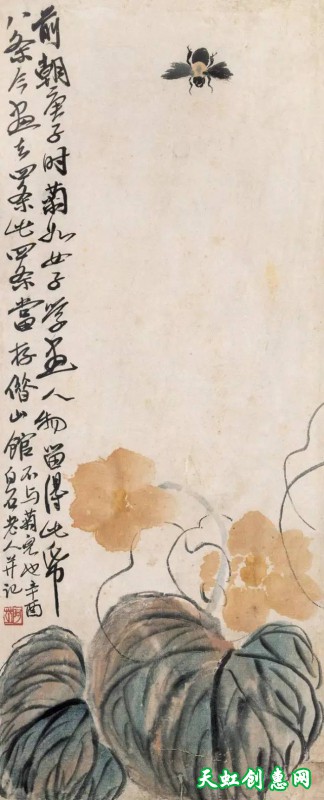 前朝庚子時菊如女子學畫人物留得此帋
八条今畫去四条此四条當存借山館
不与菊兒也辛酉
白石老人并记
天虹创惠网